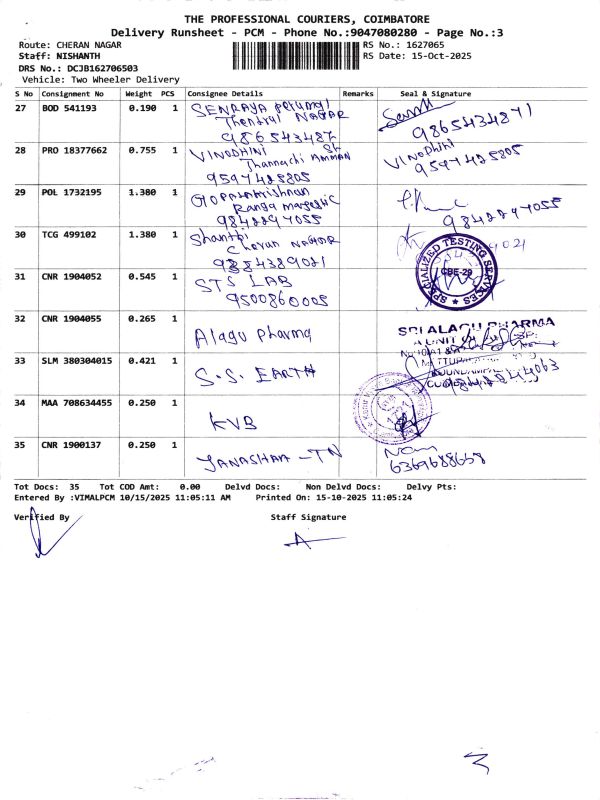 THE PROFESSIONAL COURIERS, COIMBATORE
Delivery Runsheet - PCM - Phone No.:9047080280 - Page No.:3
Route: CHERAN NAGAR
RS No.: 1627065
Staff: NISHANTH
RS Date: 15-Oct-2025
DRS No.: DCJB162706503
Vehicle: Two Wheeler Delivery
S No Consignment No Weight PCS Consignee Details Remarks Seal & Signature
27 BOD 541193 0.190 1 SENRAYA perumal
Thentral NAGAR
986543487
9865434871
28 PRO 18377662 0.755 1 VINODHINI St
Thannachi AMMAN
9597425805
VINODHINI
9597425805
29 POL 1732195 1.380 1 Gopalakrishnan
Ranga
9842297055
9842297055
30 TCG 499102 1.380 1 Shanthi
Cheran NAGAR
9384389021
9021
31 CNR 1904052 0.545 1 STS LAB
9500860005
SPECIALIZED TESTING SERVICES
CBE-29
32 CNR 1904055 0.265 1 Alagu pharma
SRI ALAGU PHARMA
A UNIT OF
33 SLM 380304015 0.421 1 S.S. EARTH
34 MAA 708634455 0.250 1 KVB
35 CNR 1900137 0.250 1 JANASHAA - TN
6369688658
Tot Docs: 35 Tot COD Amt: 0.00 Delvd Docs: Non Delvd Docs: Delvy Pts:
Entered By :VIMALPCM 10/15/2025 11:05:11 AM Printed On: 15-10-2025 11:05:24
Verified By Staff Signature